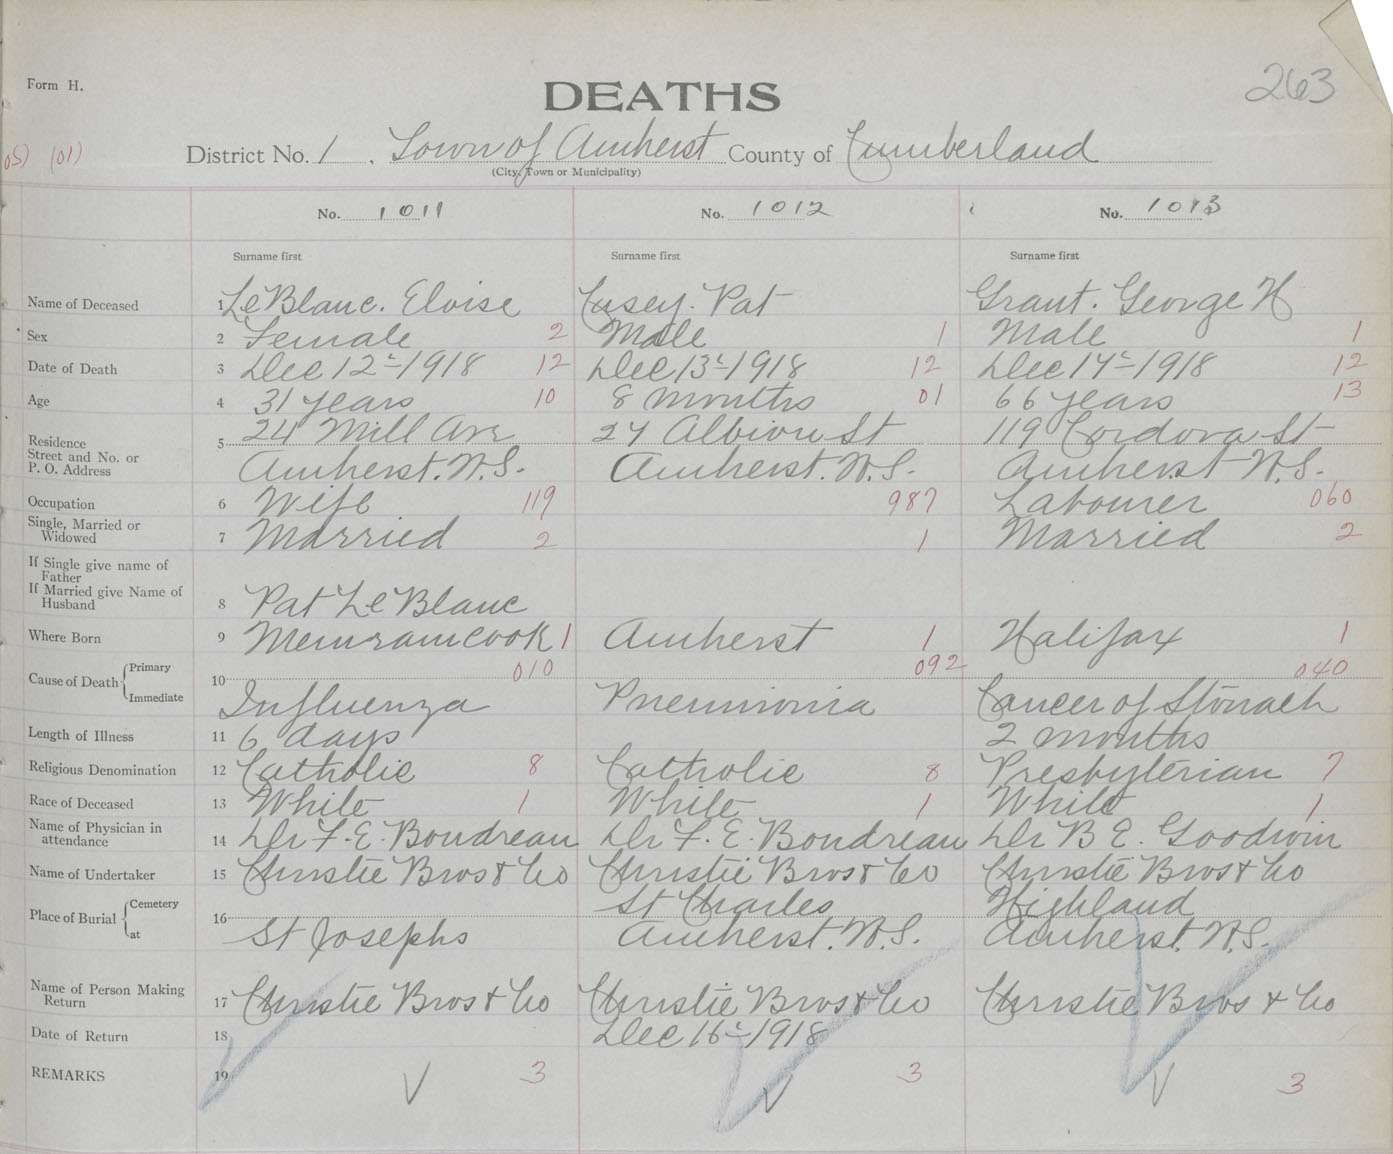 Form H.
DEATHS
263
05) (01)
District No. 1, Town of Amherst County of Cumberland
(City, Town or Municipality)
No. 1011 No. 1012 No. 1013
Surname first Surname first Surname first
Name of Deceased 1 LeBlanc. Eloise Casey. Pat Grant. George H
Sex 2 Female 2 Male 1 Male 1
Date of Death 3 Dec 12-1918 12 Dec 13-1918 12 Dec 14-1918 12
Age 4 31 years 10 8 months 01 66 years 13
Residence 5 24 Mill Ave 27 Albion St 119 Cordova St
Street and No. or
P. O. Address Amherst. N.S. Amherst. N.S. Amherst N.S.
Occupation 6 Wife 119 987 Labourer 060
Single, Married or
Widowed 7 Married 2 1 Married 2
If Single give name of
Father
If Married give Name of
Husband 8 Pat LeBlanc
Where Born 9 Memramcook 1 Amherst 1 Halifax 1
Cause of Death { Primary 10 010 092 040
Immediate Influenza Pneumonia Cancer of Stomach
Length of Illness 11 6 days 2 months
Religious Denomination 12 Catholic 8 Catholic 8 Presbyterian 7
Race of Deceased 13 White 1 White 1 White 1
Name of Physician in
attendance 14 Dr F. E. Boudreau Dr F. E. Boudreau Dr B E. Goodwin
Name of Undertaker 15 Christie Bros & Co Christie Bros & Co Christie Bros & Co
Place of Burial { Cemetery 16 St Charles Highland
at St Josephs Amherst. N.S. Amherst. N.S.
Name of Person Making
Return 17 Christie Bros & Co Christie Bros & Co Christie Bros & Co
Date of Return 18 Dec 16-1918
REMARKS 19 3 3 3